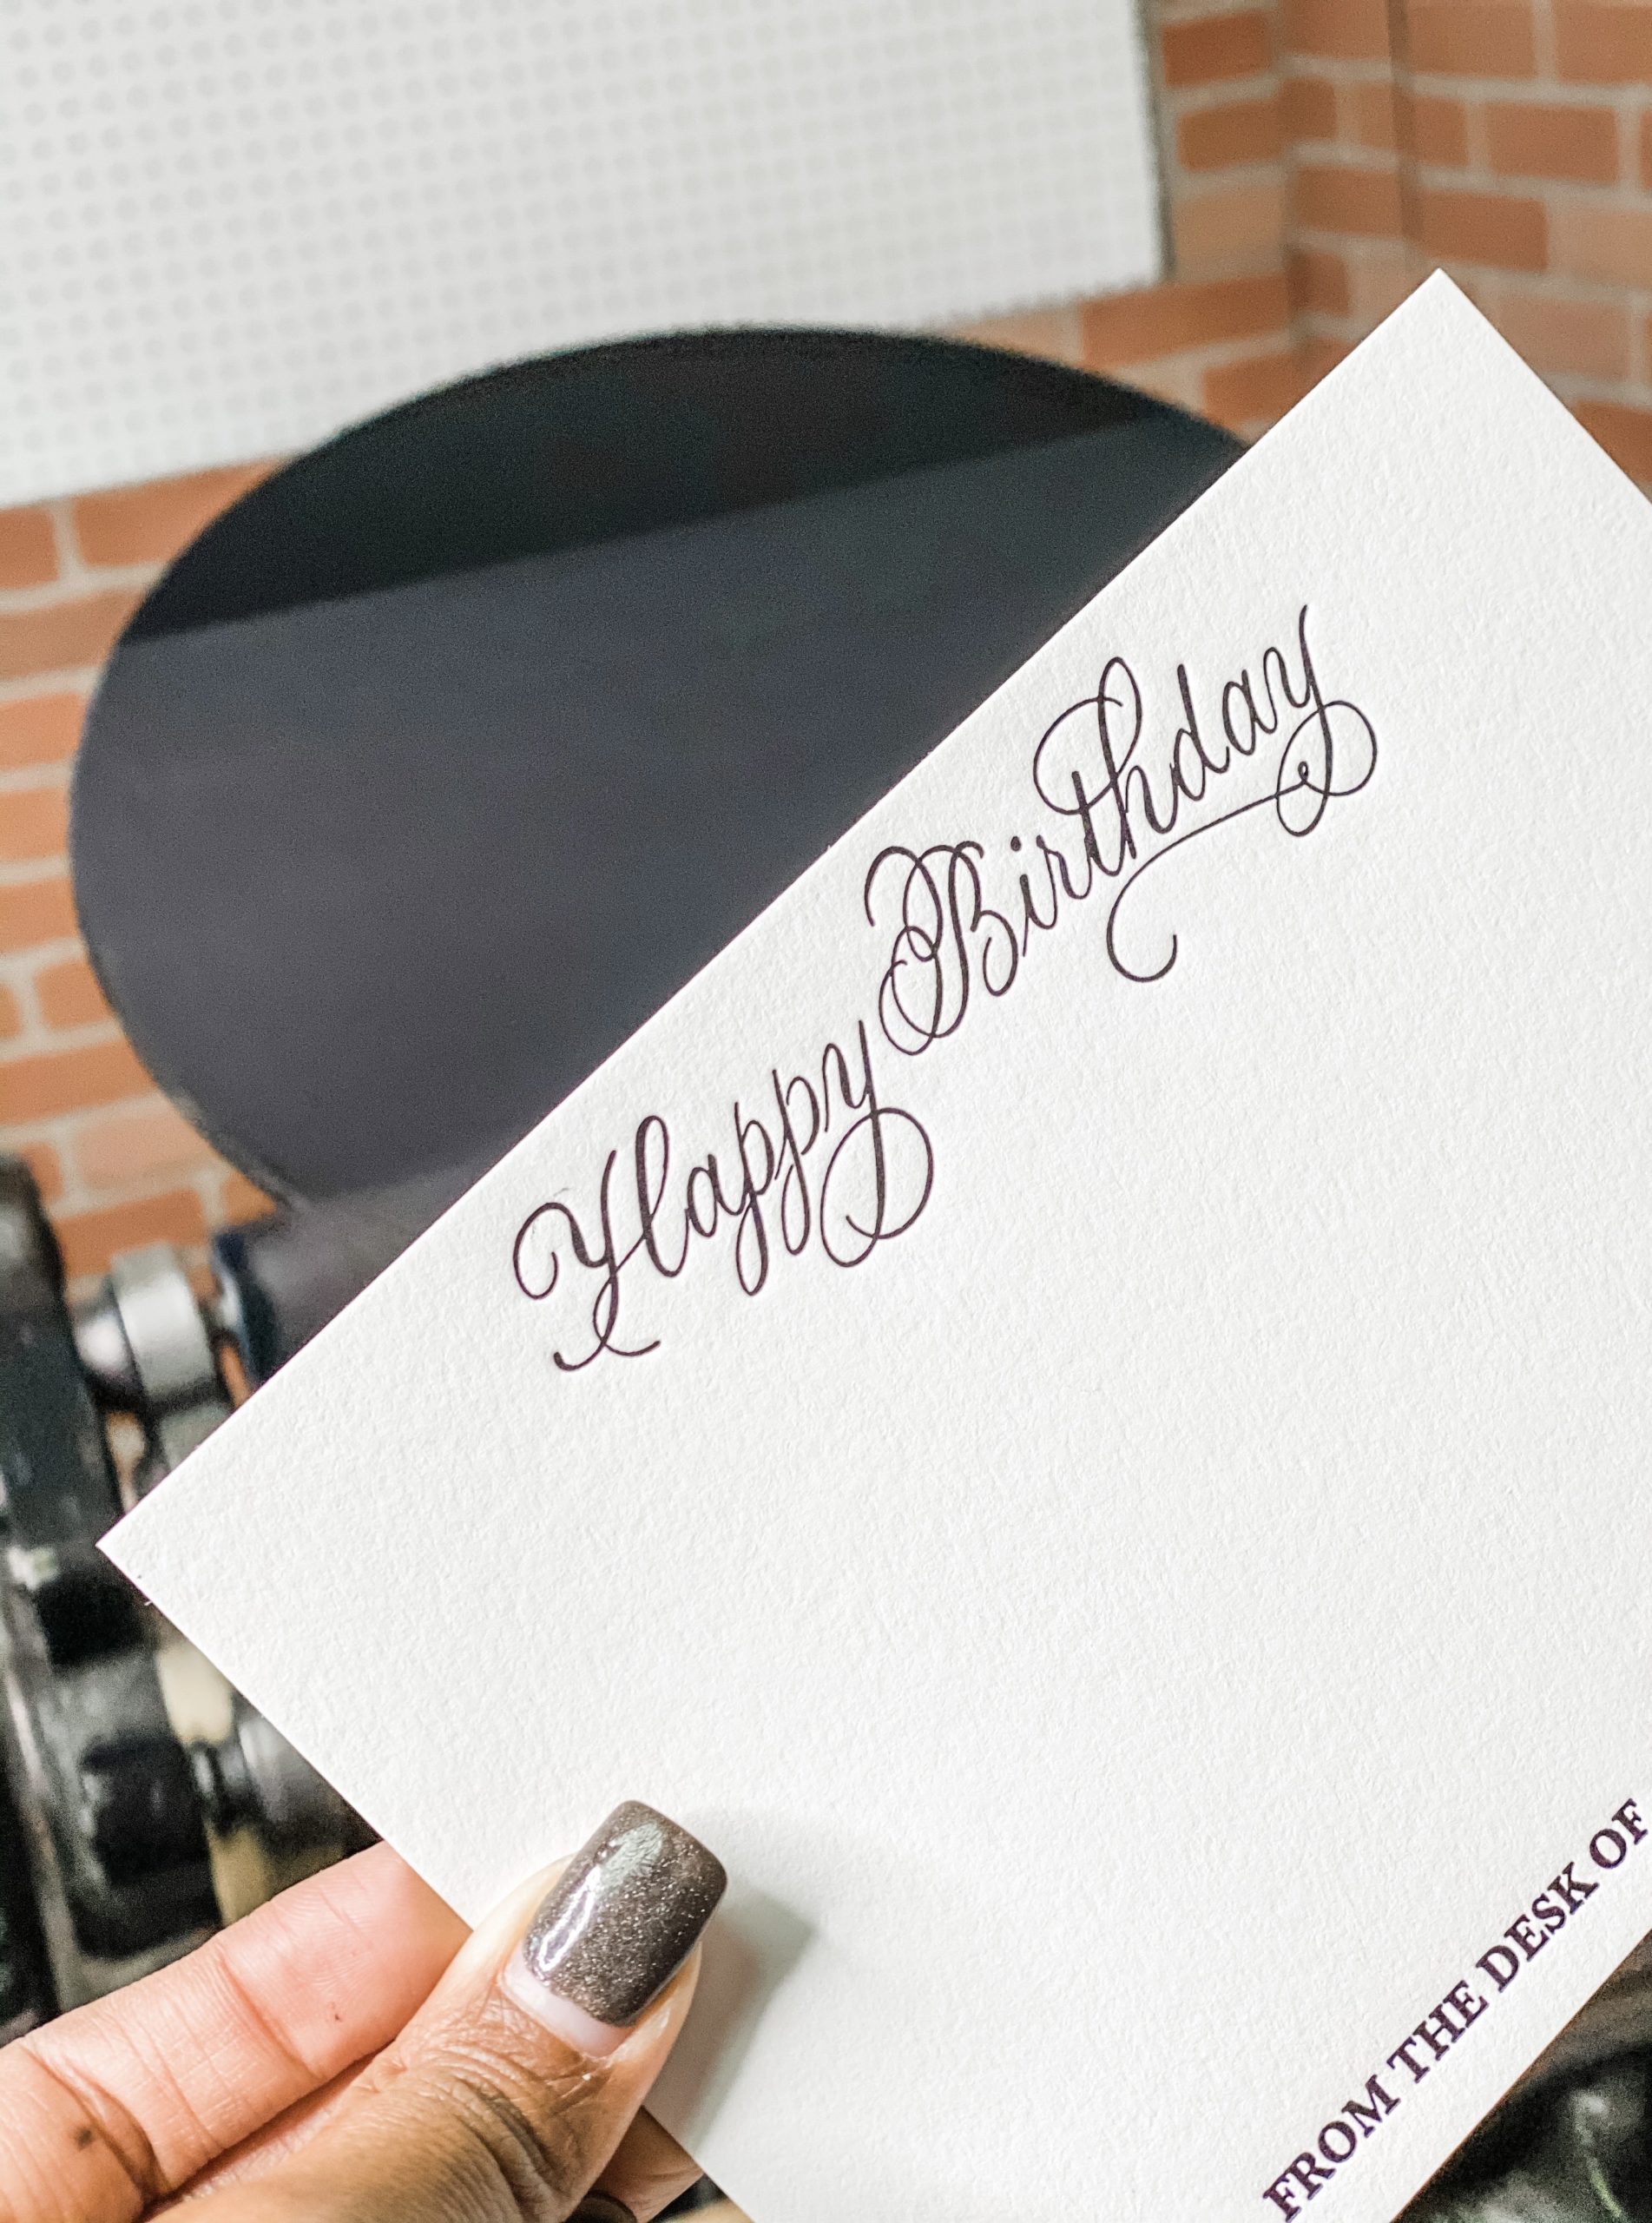 Happy Birthday
FROM THE DESK OF